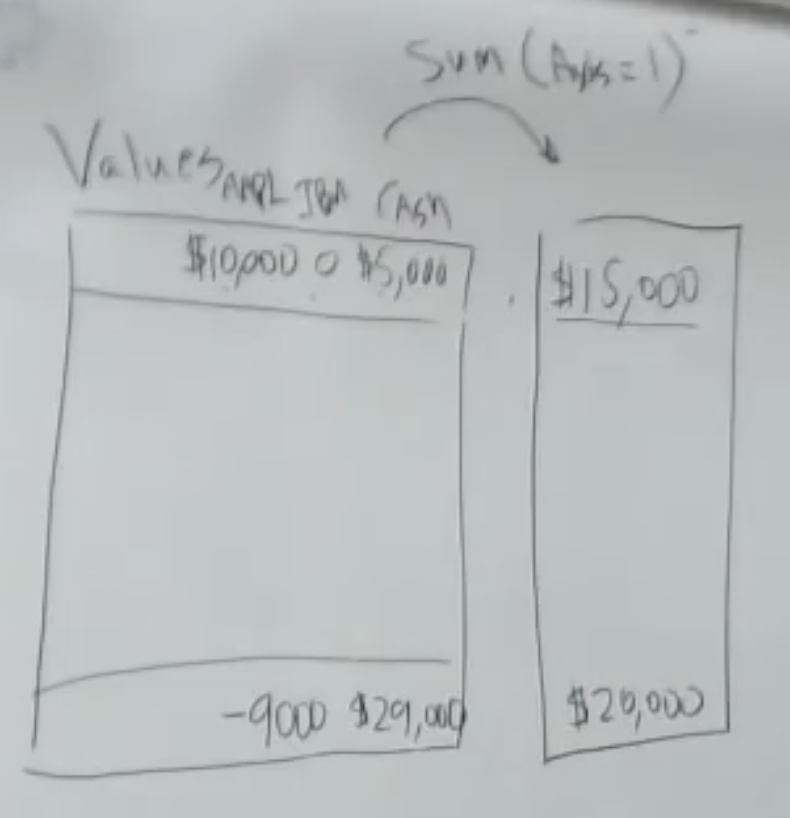 Sum (Axis=1)
Values AAPL IBM CASH
$10,000 0 $5,000
$15,000
-9000 $29,000
$20,000